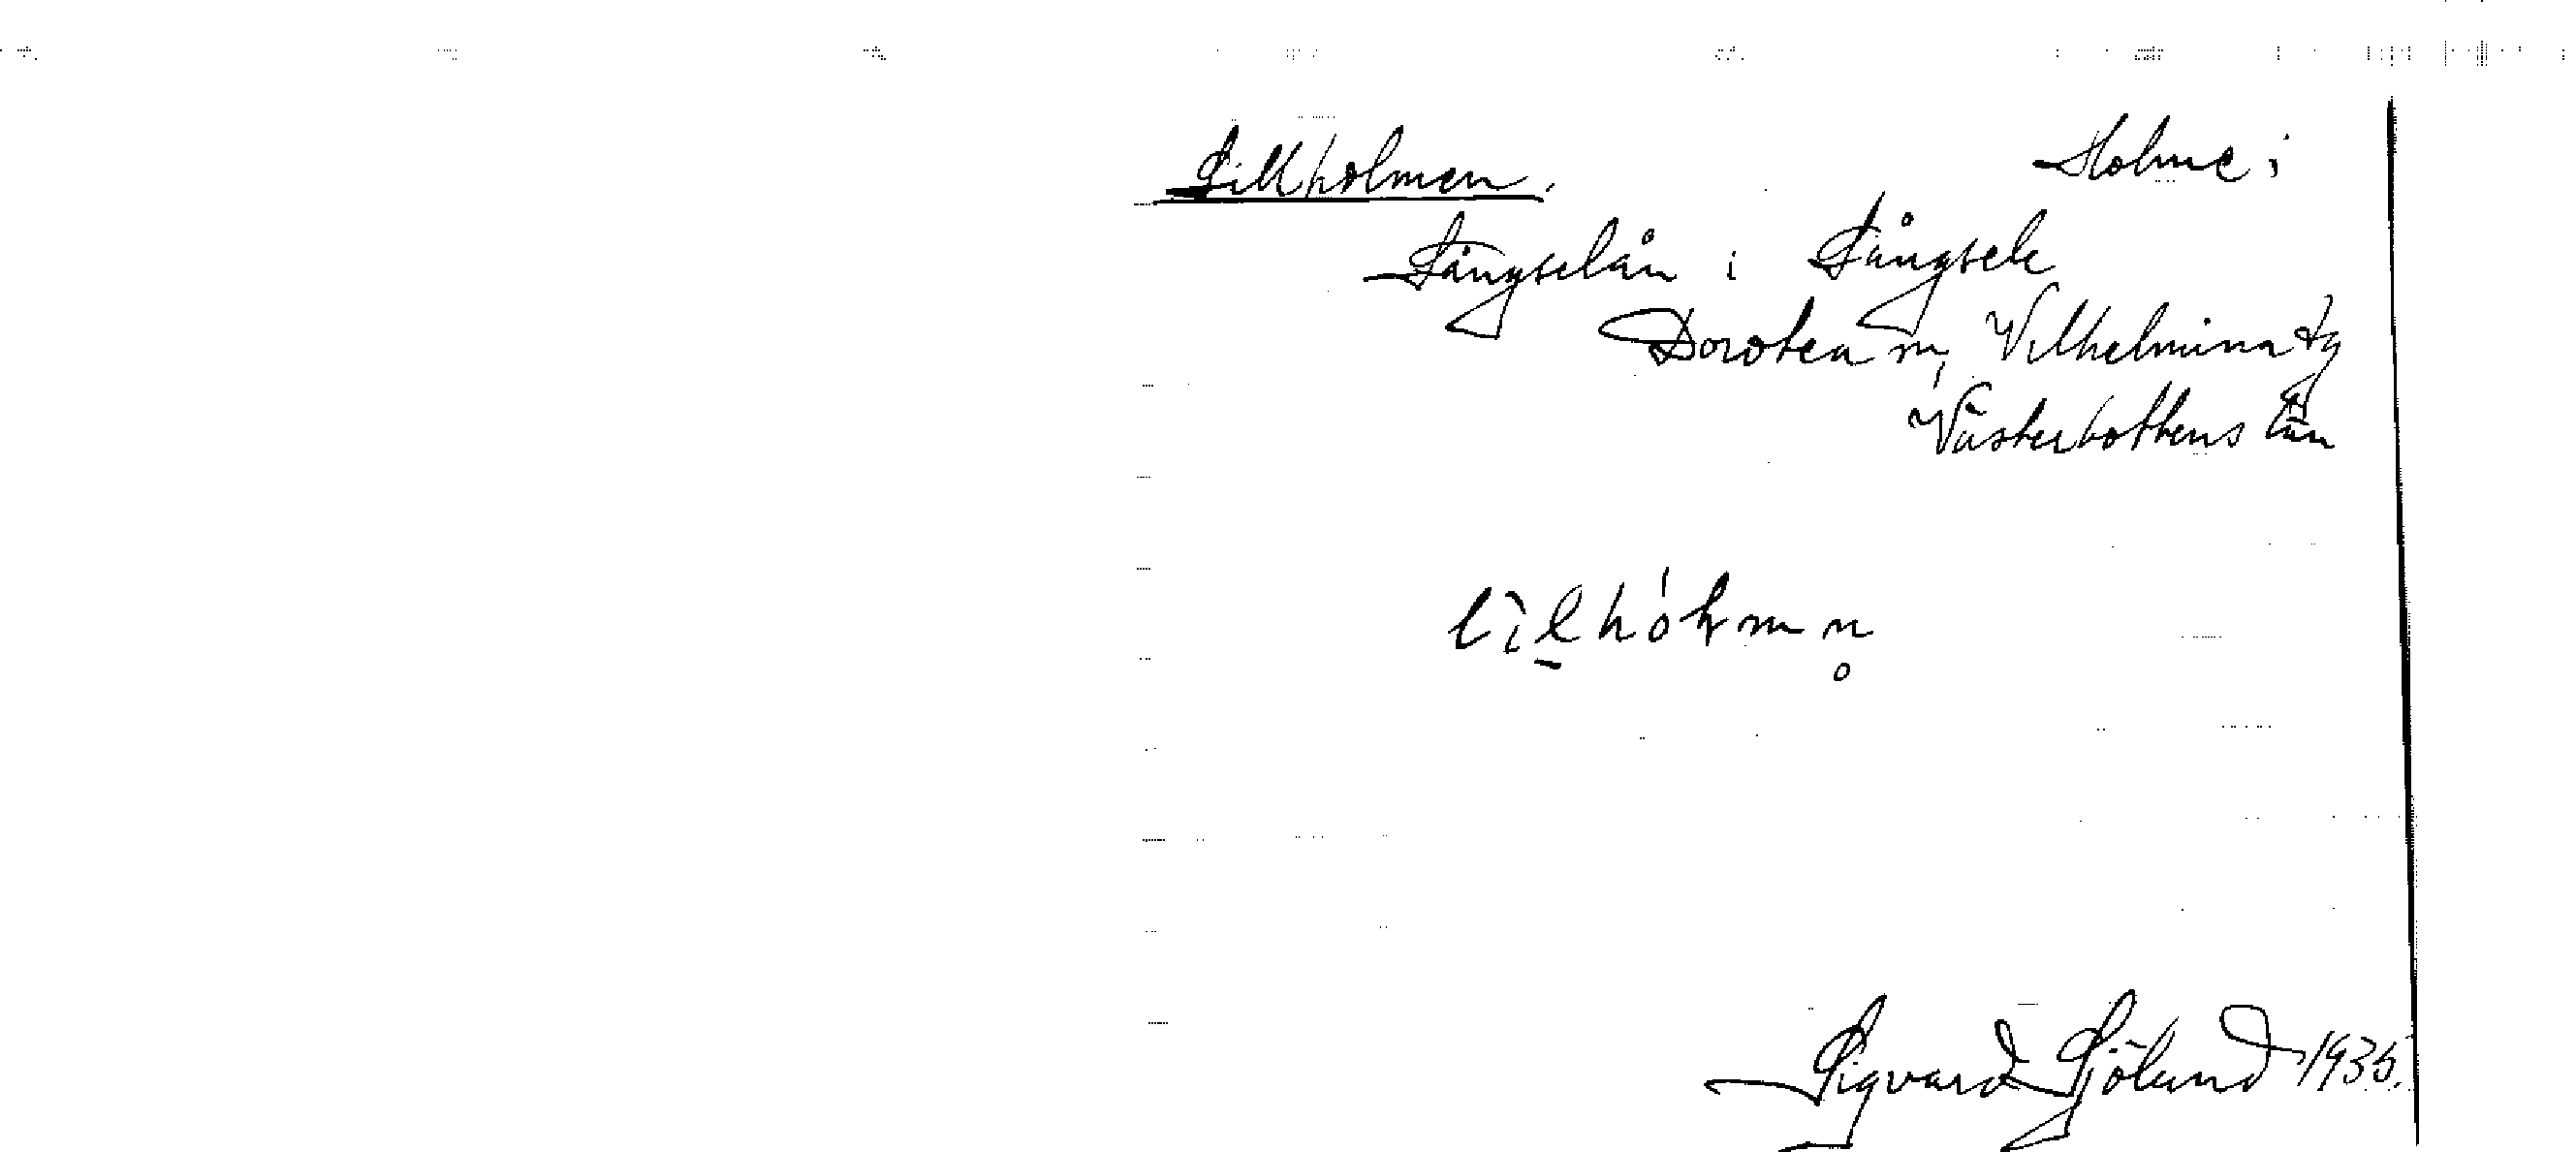 Lillholmen. Holme i
Långselån i Långsele
Dorotea sn, Vilhelmina tg
Västerbottens län
lìl̠hóɫmn̥
Sigvard Sjölund 1935.